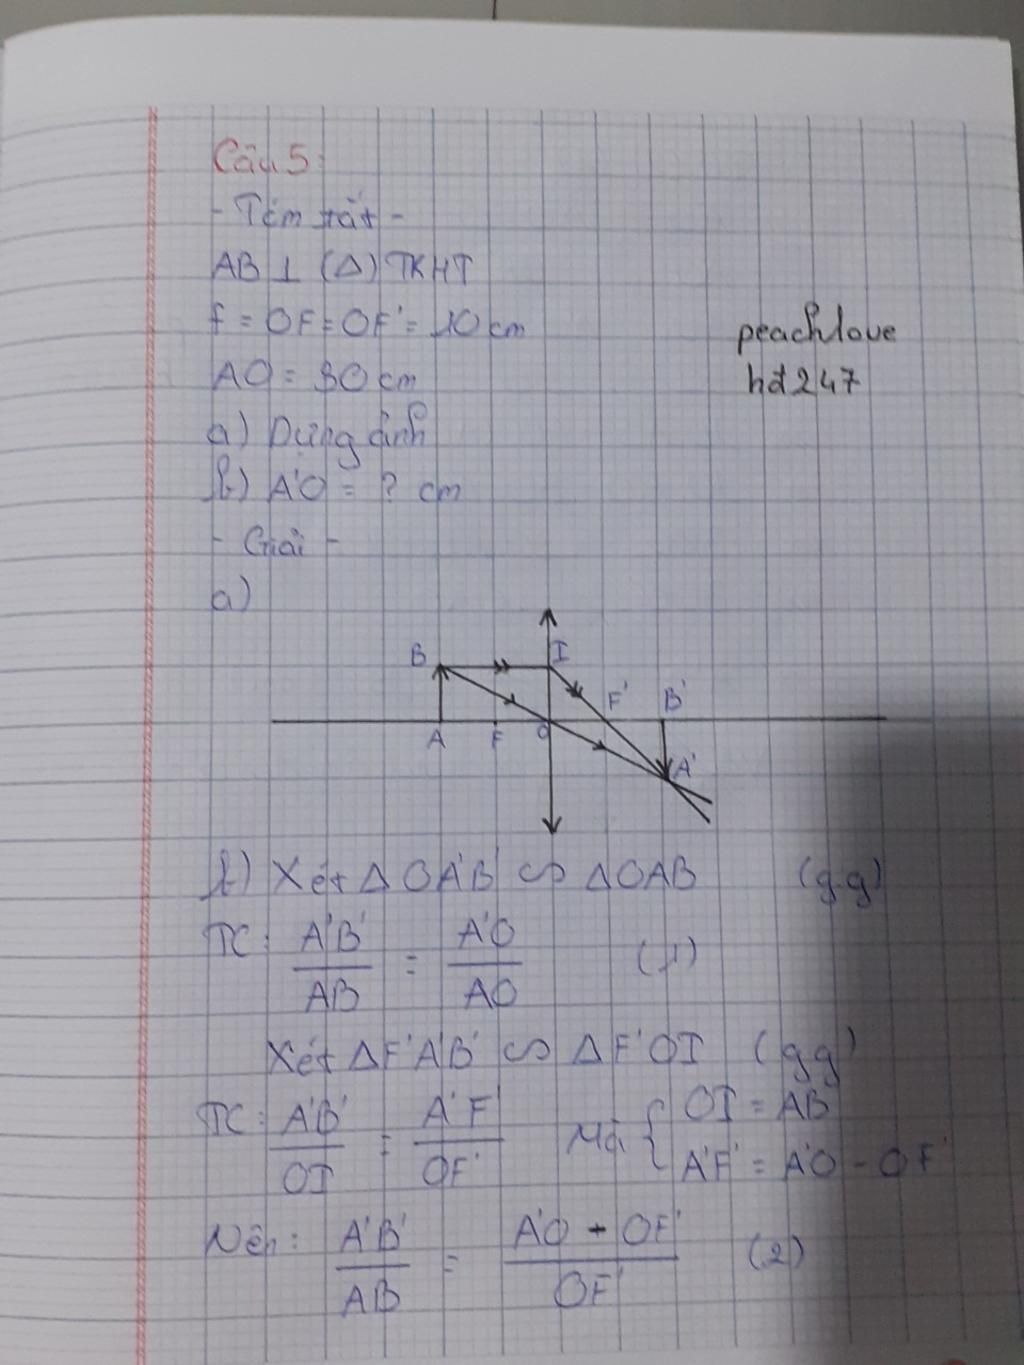 Câu 5:
- Tóm tắt -
AB ⊥ (Δ) TKHT
f = OF = OF' = 10 cm
AO = 30 cm
peachlove
hđ247
a) Dựng ảnh
b) A'O = ? cm
- Giải -
a)
B I F' B'
A F O A'
b) Xét Δ OA'B' ∽ Δ OAB (g.g)
TC: A'B'/AB = A'O/AO (1)
Xét ΔF'A'B' ∽ ΔF'OI (g.g)
TC: A'B'/OI = A'F'/OF' Mà { OI = AB
A'F' = A'O - OF'
Nên: A'B'/AB = A'O - OF'/OF' (2)